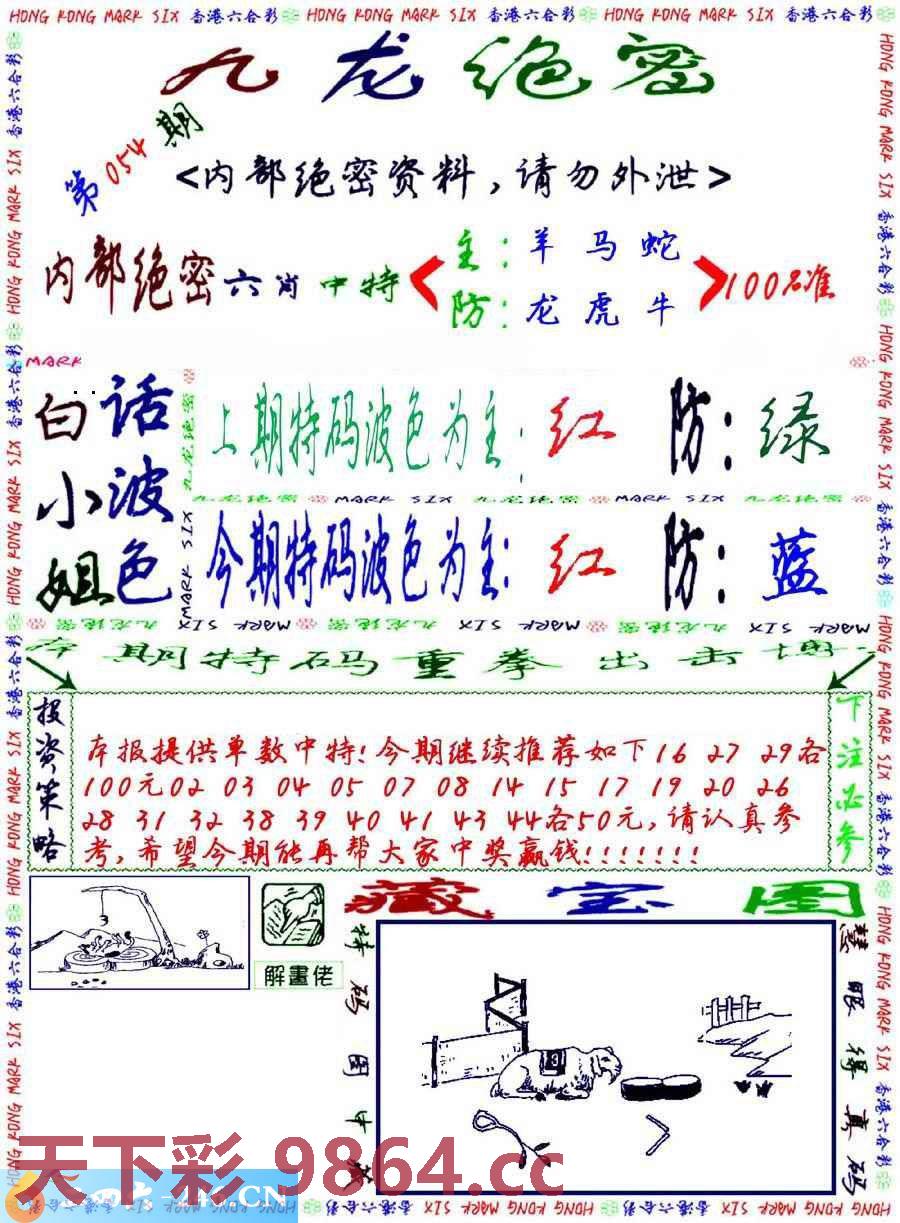 HONG KONG MARK SIX 香港六合彩 HONG KONG MARK SIX 香港六合彩 HONG KONG MARK SIX 香港六合彩
九龙绝密
第054期
<内部绝密资料,请勿外泄>
内部绝密六肖中特
主:羊马蛇
防:龙虎牛
100%准
MARK
白话小姐
波色
上期特码波色为主:红 防:绿
九龙绝密 MARK SIX 九龙绝密 MARK SIX 九龙绝密
今期特码波色为主:红 防:蓝
九龙绝密 MARK SIX 九龙绝密 MARK SIX 九龙绝密 MARK SIX
期特码重拳出击
投资策略
本报提供单数中特!今期继续推荐如下16 27 29各
100元02 03 04 05 07 08 14 15 17 19 20 26
28 31 32 38 39 40 41 43 44各50元,请认真参
考,希望今期能再帮大家中奖赢钱!!!!!!!
下注必参
藏宝图
解畫佬
特码图中藏
慧眼得真码
3
3
天下彩.9864.cc
246.CN